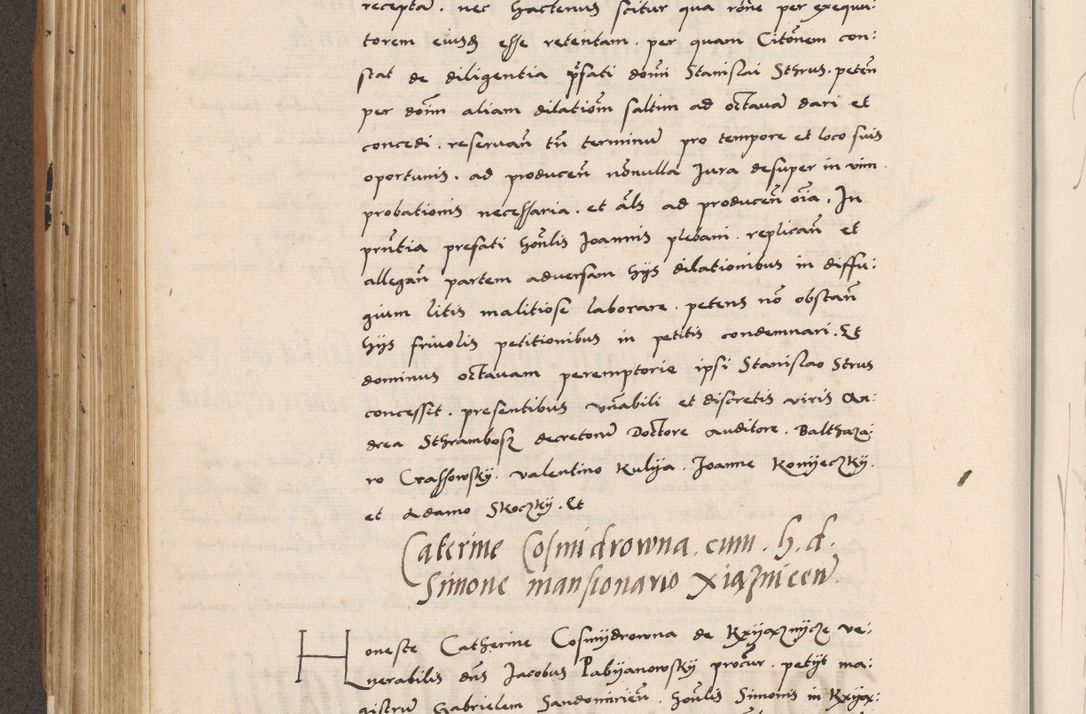 receptam. nec hactenus scitur qua rone per exequu:
torem eiusdē esse retentam. per quam Citonem con:
stat de diligentia pfati domi Stanislai Sthrus. peteñ
per domi aliam dilationem saltim ad octavam dari et
concedi. reservañ tñ terminum pro tempore et loco suis
oportunis. ad produceñ nonulla Jura desuper in vim
probationis necessaria. et als ad produceñ oia. In
pñtia prefati honlis Joannis plebani. replicañ et
allegañ partem adversam hijs dilationibus in diffu:
gium litis malitiose laborare. petens nō obstañ
hijs frivolis petitionibus in petitis condemnari. Et
dominus octavam peremptorie ipsi Stanislao Strus
concessit. presentibus vñabili et discretis viris An:
drea Sthrambosz decretorum Doctore auditore. Balthaza:
ro Crassowskij. valentino Kulija. Joanne Konijeczkij.
et Adamo Skoczkij. Et
Caterine Cosmidrowna. cum. h. d.
Simone mansionario Xiąznicen
Honeste Catherine Cosmijdrowna de Kxijaznijcze ve:
nerabilis dñs Jacobus Pabijanowskij procur. petijt ma:
gistrum Gabrielem Sandomirieñ. honlis Simonis in Kxijaz: